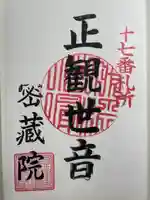 十七番札所
正観世音
密蔵院